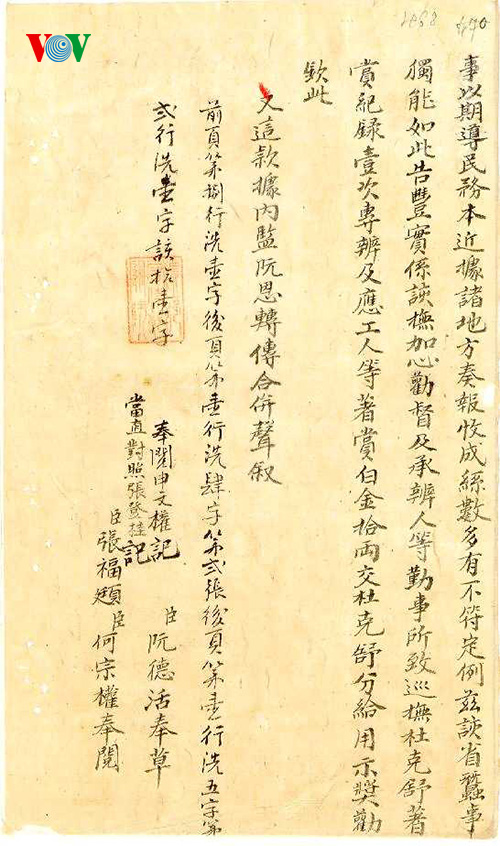 VOV
事以期導民務本近據諸地方奏報收成絲數多有不符定例茲該省蚕事
獨能如此告豐實係該撫加心勸督及承辨人等勤事所致巡撫杜克舒著
賞紀錄壹次專辨及應工人等著賞白金拾兩交杜克舒分給用示獎勸
欽此
又這款據內監阮恩轉傳合併聲叙
前頁第捌行洗壹字後頁第壹行洗肆字第弍張後頁第壹行洗五字第
弍行洗壹字該拾壹字
奉閱申文權記
當直對照張登桂記
臣阮德活奉草
臣張福
臣何宗權奉閱